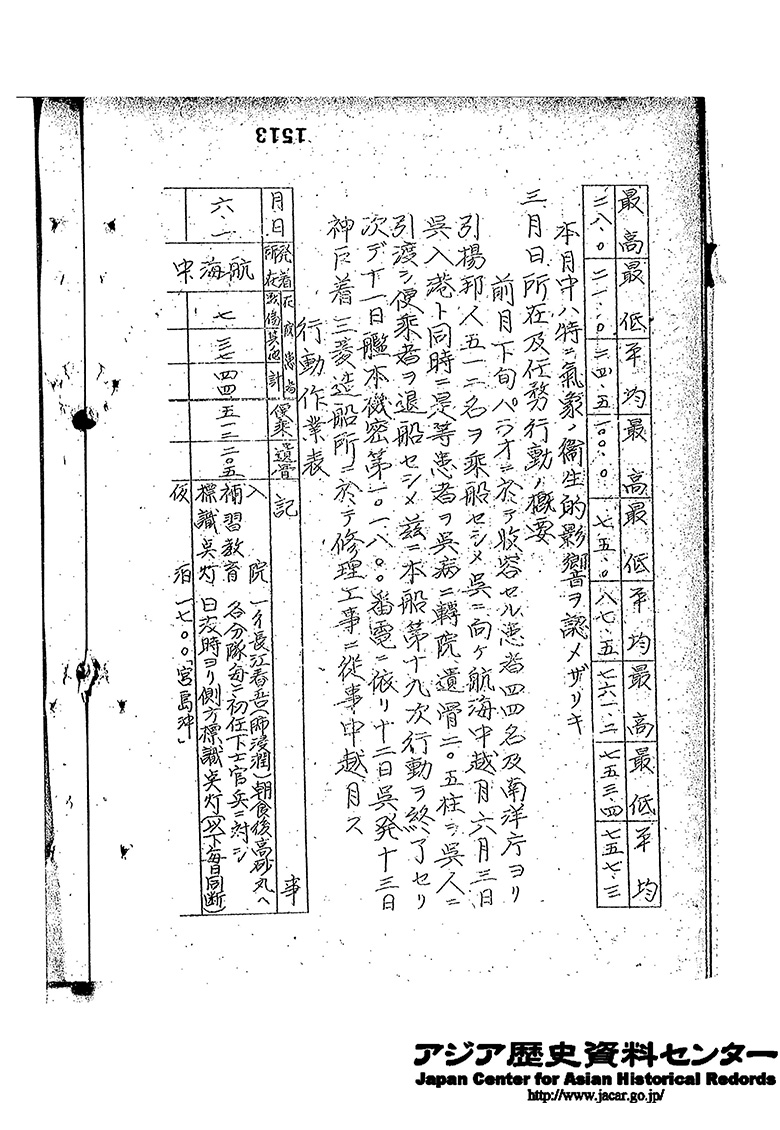 1513
最高 最低 平均 最高 最低 平均 最高 最低 平均
二八.〇 二一.〇 二四.五 一〇〇.〇 七五.〇 八七.五 七六一.二 七五三.四 七五七.三
本月中ハ特ニ氣象ノ衛生的影響ヲ認メザリキ
三月日所在及任務行動ノ概要
前月下旬パラオニ於テ收容セル患者四四名及南洋庁ヨリ
引揚邦人五一二名ヲ乗船セシメ呉ニ向ケ航海中越月六月三日
呉入港ト同時ニ是等患者ヲ呉病ニ轉院、遺骨二〇五柱ヲ呉人ニ
引渡シ便乗者ヲ退船セシメ茲ニ本船第十九次行動ヲ終了セリ
次デ十一日艦本機密第一〇一八〇〇番電ニ依リ十二日呉発十三日
神戸着三菱造船所ニ於テ修理工事ニ從事中越月ス
行動作業表
月日 発着所在 戦傷 其他 計 便乗 遺骨 記事
六.一 航海中 七 三七 四四 五一二 二〇五
入院 一イ長江春吾(肺浸潤)朝食後高砂丸ヘ
補習教育 各分隊毎ニ初任下士官兵ニ対シ
標識点灯 日没時ヨリ側方標識点灯(以下毎日同断)
仮泊 一七〇〇「宮島沖」
アジア歴史資料センター
Japan Center for Asian Historical Redords
http://www.jacar.go.jp/